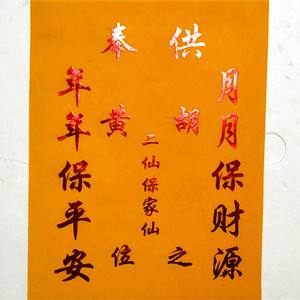 月月保财源
供奉
胡黄
二仙保家仙
之位
年年保平安